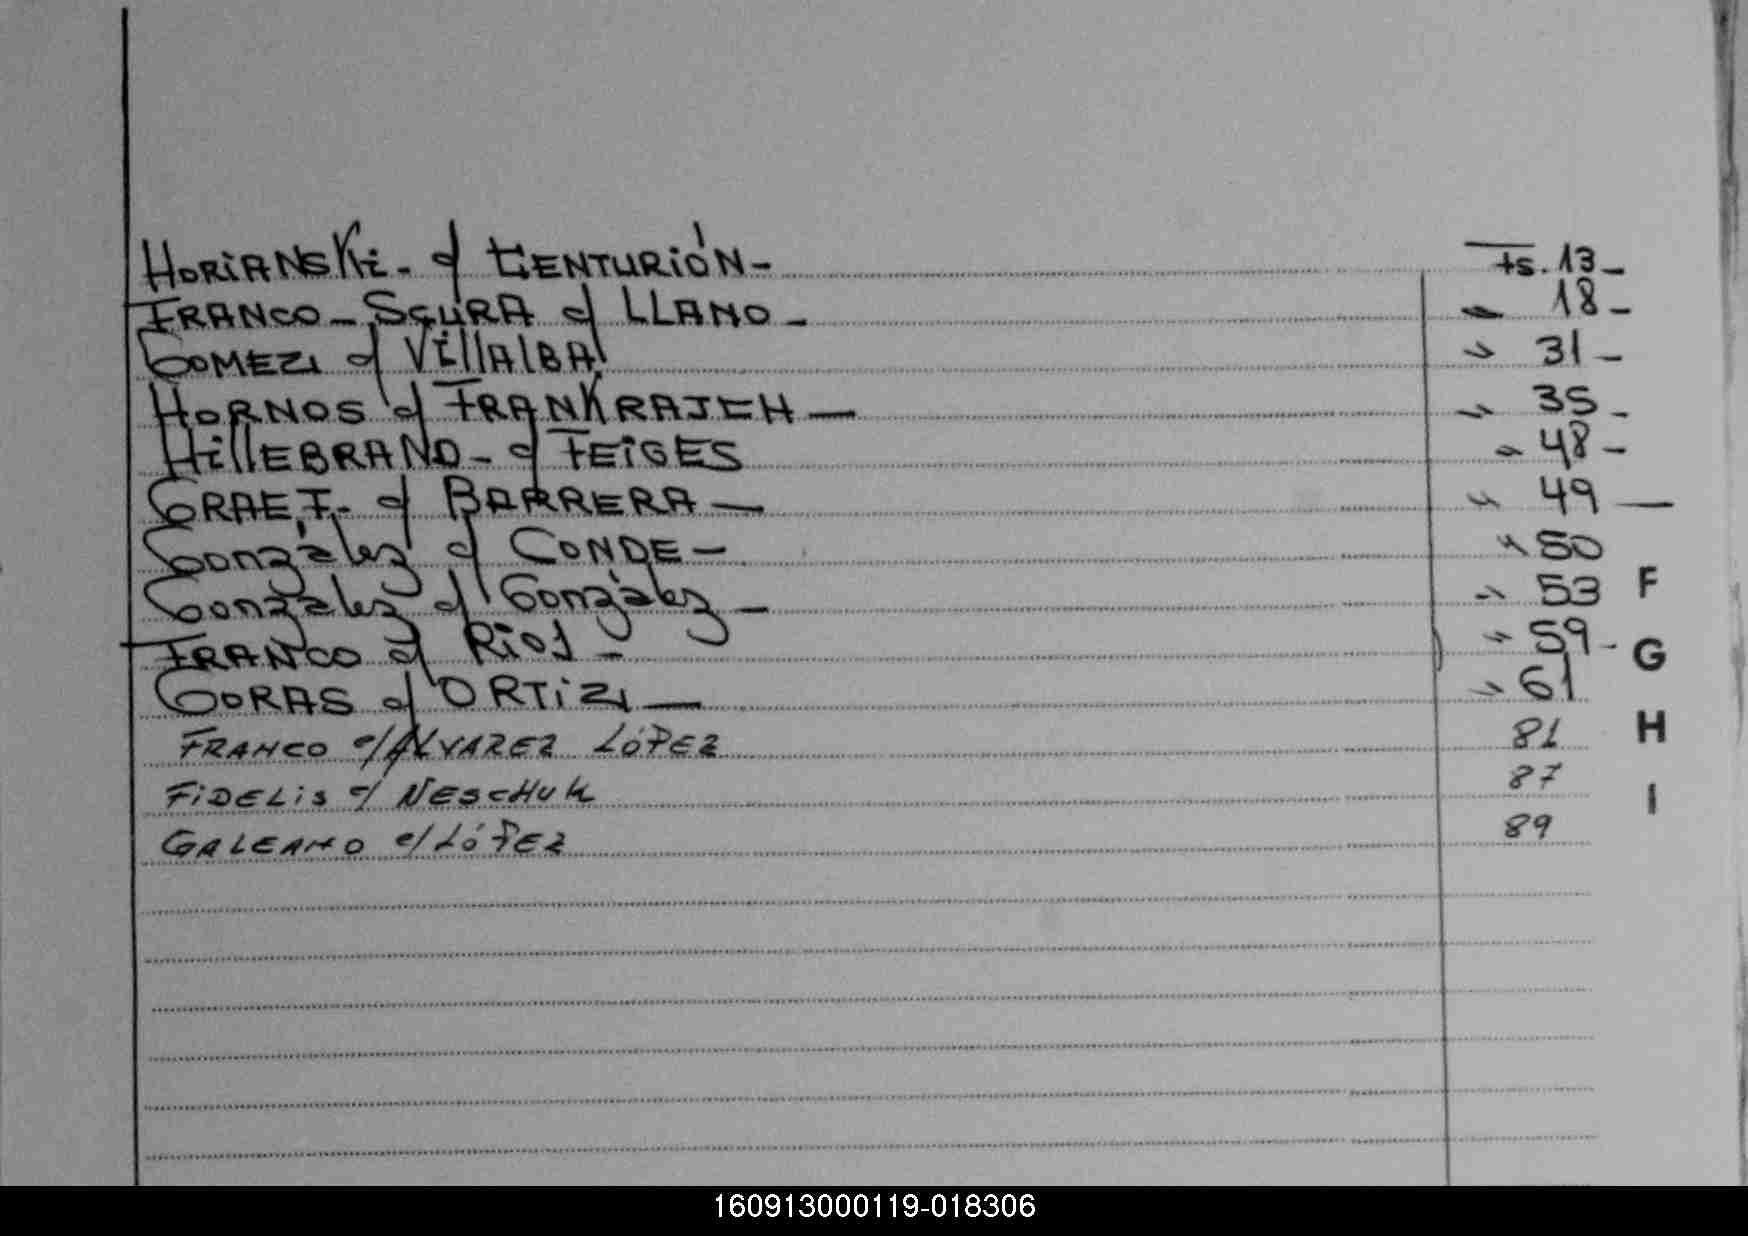 HORIANSKi - c/ CENTURIÓN - Fs. 13 -
FRANCO - SGURA c/ LLANO - " 18 -
GOMEZ c/ VillALBA " 31 -
HORNOS c/ FRANKRAJCH — " 35 -
HillEBRAND - c/ FEiGES " 48 -
GRAEF - c/ BARRERA — " 49 —
González c/ CONDE - " 50
González c/ González - " 53
FRANCO c/ RiOS - " 59 -
GORAS c/ ORTiZ — " 61
FRANCO c/ ALVAREZ LÓPEZ 81
FiDELiS c/ NESCHUK 87
GALEANO c/ LÓPEZ 89
F
G
H
I
160913000119-018306